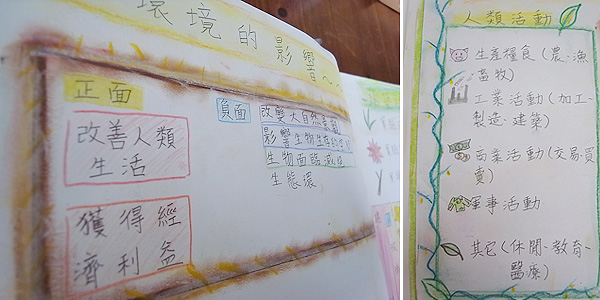 環境的影響~~
正面
改善人類
生活
獲得經
濟利益
負面
改變大自然景觀
影響生物生存的
生物面臨滅
生態環
人類活動
生產糧食(農、漁、
畜牧)
工業活動(加工、
製造、建築)
商業活動(交易、買
賣)
軍事活動
其它(休閒、教育、
醫療)